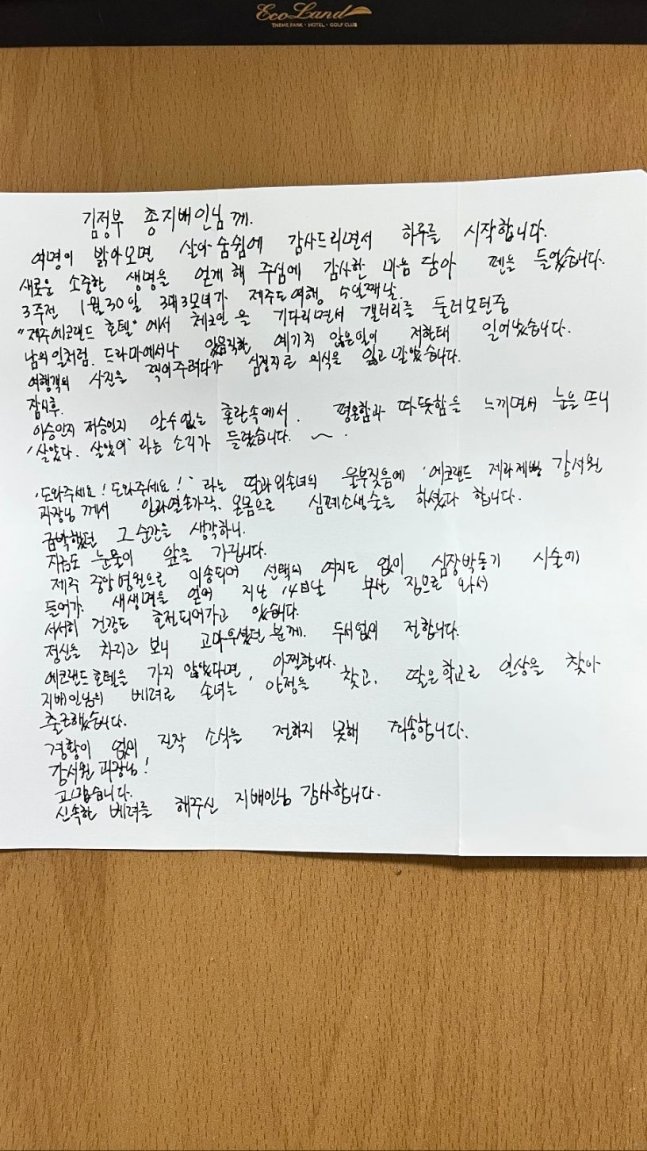 EcoLand
THEME PARK · HOTEL · GOLF CLUB
김정부 총지배인님께.
여명이 밝아오면 살아 숨쉼에 감사드리면서 하루를 시작합니다.
새로운 소중한 생명을 얻게 해 주심에 감사한 마음 담아 펜을 들었습니다.
3주전 1월 30일 3대 3모녀가 제주도여행 5일째날.
"제주에코랜드 호텔"에서 체크인을 기다리면서 갤러리를 둘러보던중
남의일처럼. 드라마에서나 있음직한 예기치 않은일이 저한태 일어났습니다.
여행객의 사진을 찍어주려다가 심정지로 의식을 잃고 말았습니다.
잠시후.
이승인지 저승인지 알수없는 혼란속에서. 평온함과 따뜻함을 느끼면서 눈을 뜨니
'살았다. 살았어' 라는 소리가 들렸습니다. ~.
'도와주세요! 도와주세요!' 라는 딸과 외손녀의 울부짖음에 '에코랜드 제라제빵 강서원
과장님께서 입과 연손가락, 온몸으로 심폐소생술을 하셨다 합니다.
급박했던 그순간을 생각하니.
지금도 눈물이 앞을 가립니다.
제주 중앙병원으로 이송되어 선택의 여지도 없이 심장박동기 시술에
들어가 새생명을 얻어 지난 14日날 부산 집으로 와서
서서히 건강도 호전되어가고 있습니다.
정신을 차리고 보니 고마우셨던 분께. 두서없이 전합니다.
에코랜드호텔을 가지 않았다면, 아찔합니다.
지배인님의 베려로 손녀는 안정을 찾고, 딸은 학교로 일상을 찾아
출근했습니다.
경황이 없어 진작 소식을 전하지 못해 죄송합니다.
강서원 과장님!
고맙습니다.
신속한 베려를 해주신 지배인님 감사합니다.